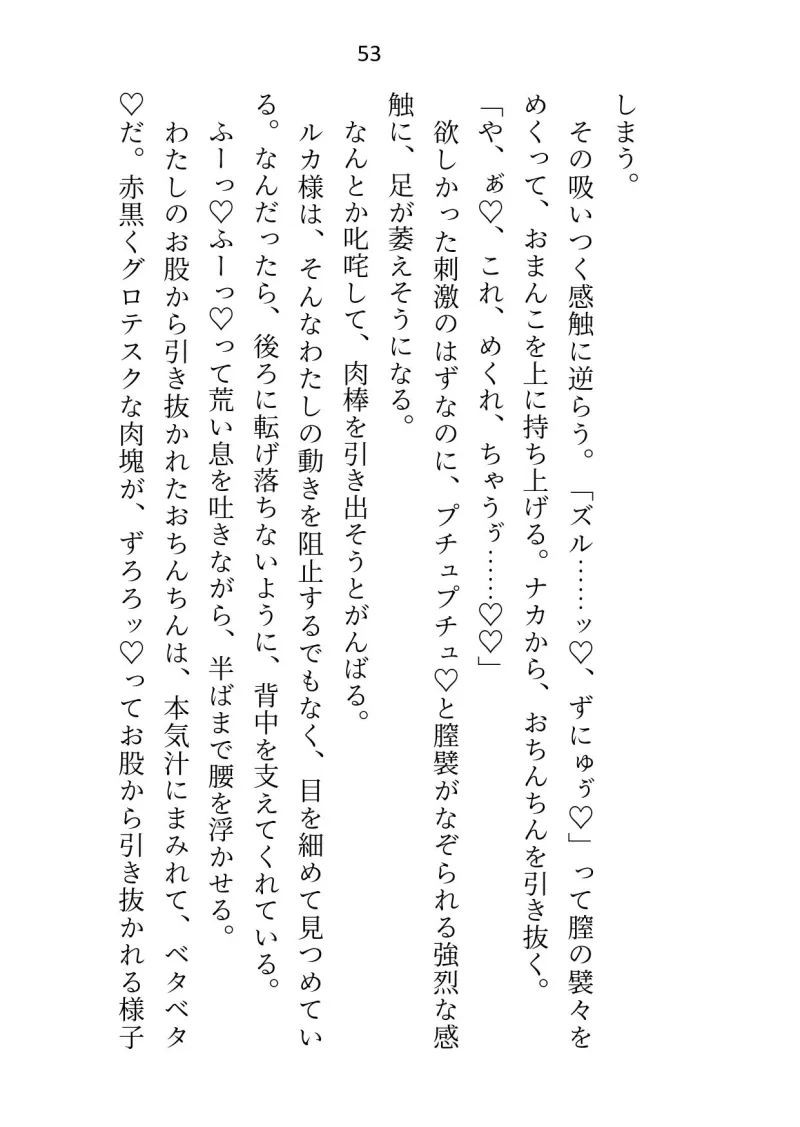 53
しまう。
その吸いつく感触に逆らう。「ズル……ッ♡、ずにゅぅ゛♡」って膣の襞々を
めくって、おまんこを上に持ち上げる。ナカから、おちんちんを引き抜く。
「や、ぁ゛♡、これ、めくれ、ちゃうゔ……♡♡」
欲しかった刺激のはずなのに、プチュプチュ♡と膣襞がなぞられる強烈な感
触に、足が萎えそうになる。
なんとか叱咤して、肉棒を引き出そうとがんばる。
ルカ様は、そんなわたしの動きを阻止するでもなく、目を細めて見つめてい
る。なんだったら、後ろに転げ落ちないように、背中を支えてくれている。
ふーっ♡ふーっ♡って荒い息を吐きながら、半ばまで腰を浮かせる。
わたしのお股から引き抜かれたおちんちんは、本気汁にまみれて、ベタベタ
♡だ。赤黒くグロテスクな肉塊が、ずろろッ♡ってお股から引き抜かれる様子